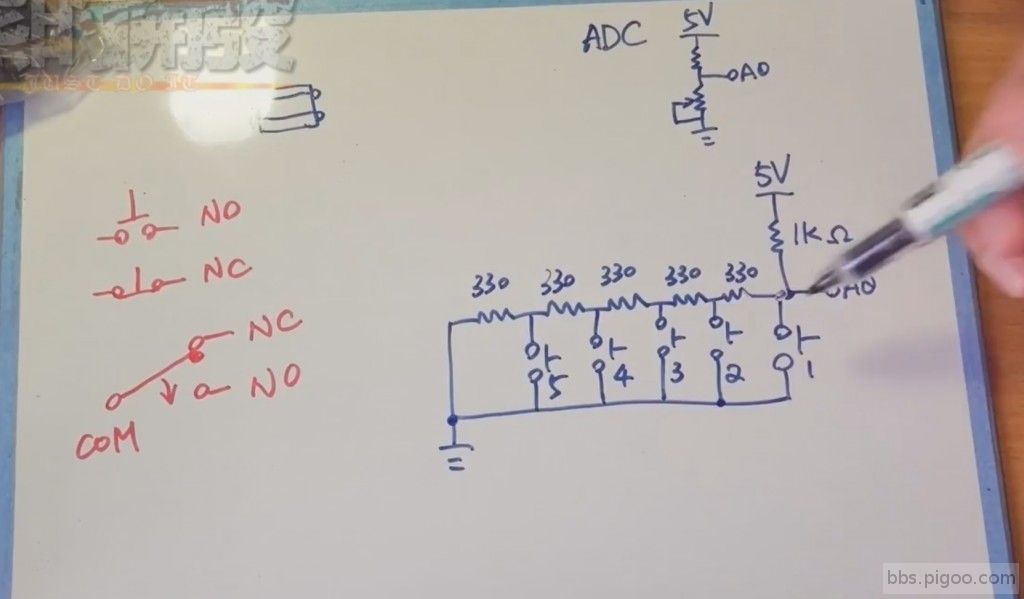 JUST DO IT
ADC
5V
A0
5V
1KΩ
A0
330 330 330 330 330
5 4 3 2 1
NO
NC
NC
NO
COM
bbs.pigoo.com